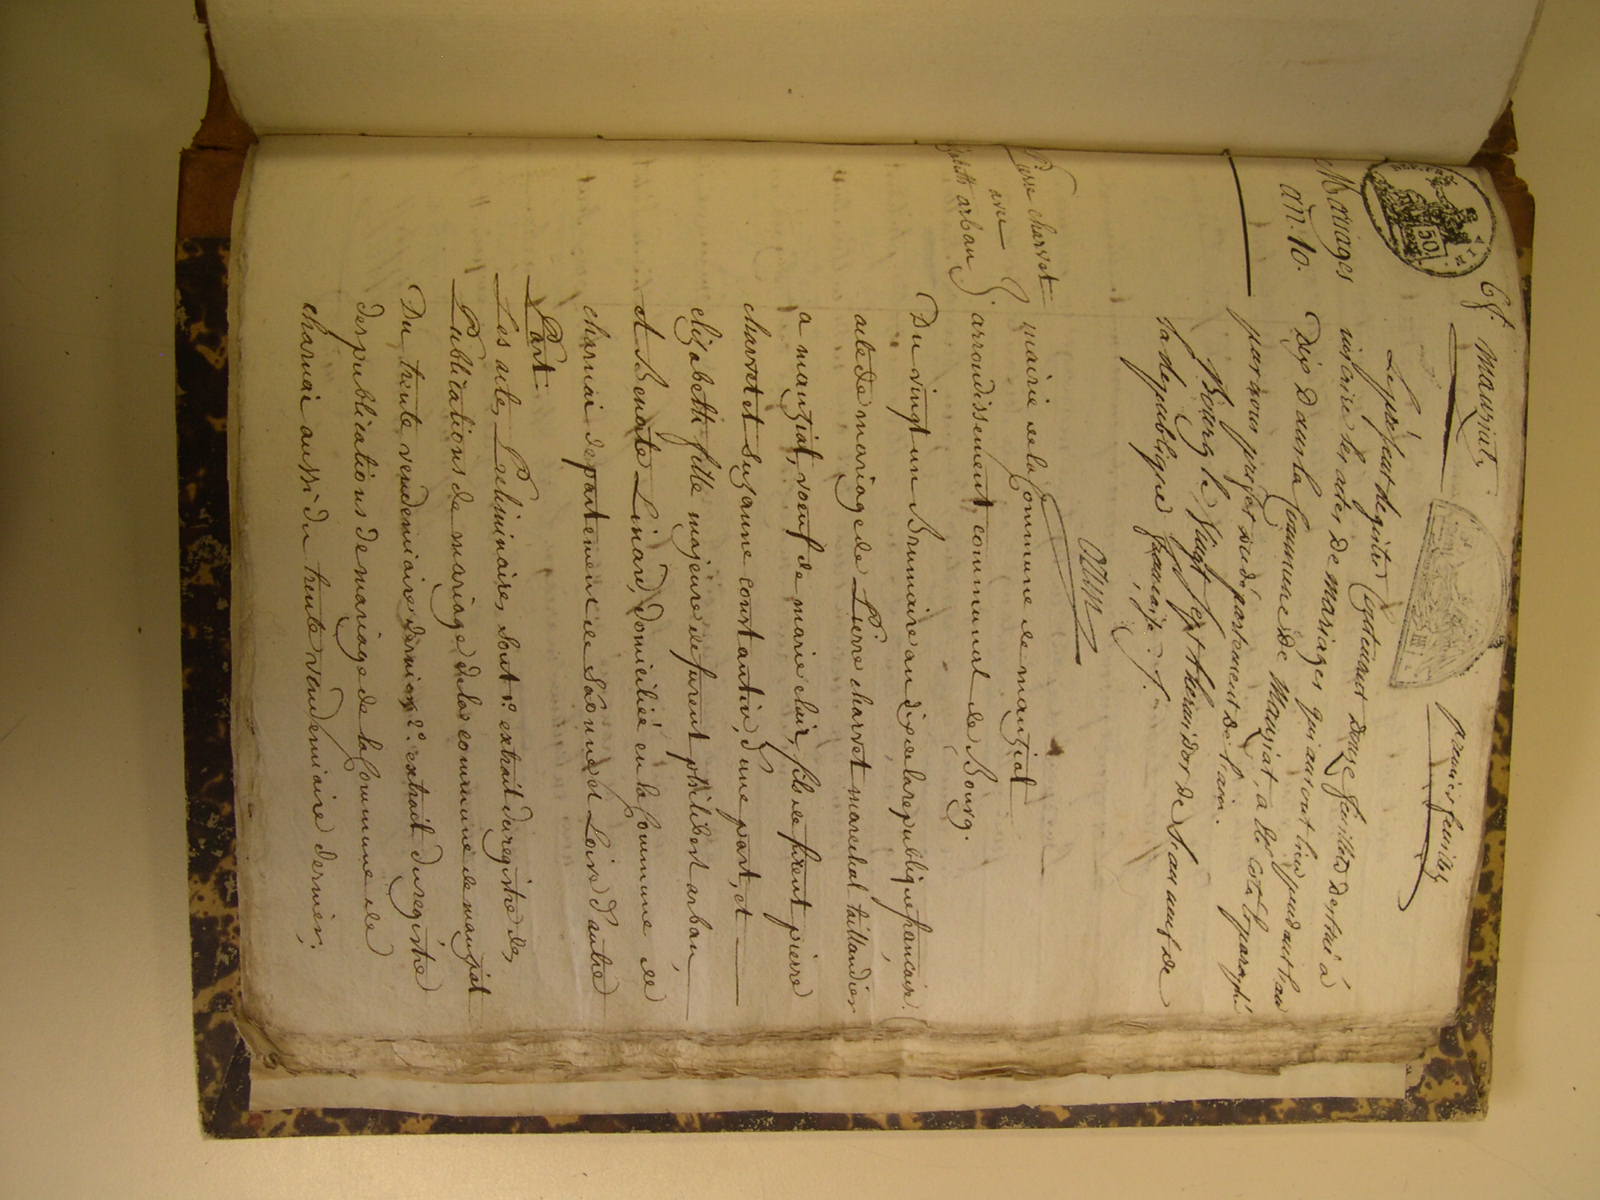 6f. Mauziat,
premier feuillet
Mariages
an. 10.
50
Le présent registre Contenant douze feuillets destiné à
inscrire les actes de mariages qui auront lieu pendant l'an
Dix dans la Commune de Mauziat, a été coté & paraphé
par nous préfet du département de l'ain.
Bourg le Vingt sept thermidor de l'an neuf de
la République française.
Pierre charvet
avec
arban
mairie de la Commune de mauziat
arrondissement communal de Bourg.
Du vingt un Brumaire an dix de la republique francaise
acte de mariage de Pierre charvet marechal taillandier
a mauziat, voeuf de marie clair, fils de furent pierre
charvet et suzanne constantin, d'une part, et
elizabeth fille majeure de furent philibert arban,
et Benoite Linard, domiciliée en la Commune de
charnai departement de Saone et Loire d'autre
Part.
Les actes Preliminaires sont 1°. extrait du registre des
Publications de mariage de la commune de mauziat
Du trente vendemiaire dernier, 2°. extrait du registre
des publications de mariage de la Commune de
charnai aussi du trente vendemiaire dernier,